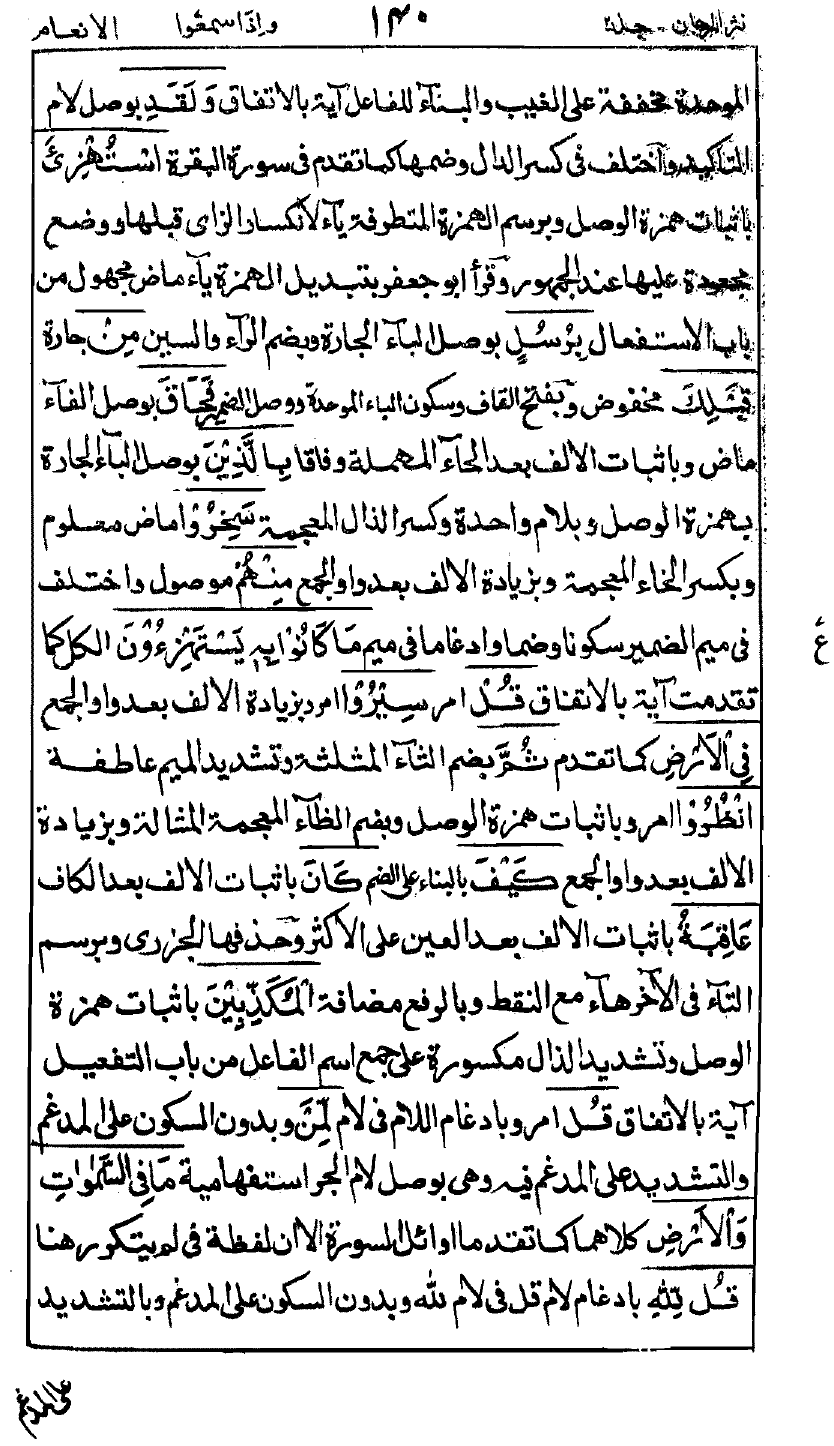 نثر المرجان - جلد ١٤٠ واذا سمعوا الانعام
الموحدة مخففة على الغيب والبناء للفاعل آية بالاتفاق وَلَقَدِ بوصل لام
التاكيد واختلف فى كسر الدال وضمها كما تقدم فى سورة البقرة اسْتُهْزِئَ
باثبات همزة الوصل وبرسم الهمزة المتطرفة ياء لانكسار الزاى قبلها ووضع
مجعودة عليها عند الجمهور وقرأ ابو جعفر بتبديل الهمزة ياء ماض مجهول من
باب الاستفعال بِرُسُلٍ بوصل الباء الجارة وبضم الراء والسين مِنْ جارة
قَبْلِكَ مخفوض وبفتح القاف وسكون الباء الموحدة ووصل الضمير فَحَاقَ بوصل الفاء
ماض وباثبات الالف بعد الحاء المهملة وفاقا بِالَّذِيْنَ بوصل الباء الجارة
بهمزة الوصل وبلام واحدة وكسر الذال المعجمة سَخِرُوْا ماض معلوم
وبكسر الخاء المعجمة وبزيادة الالف بعد واو الجمع مِنْهُمْ موصول واختلف
فى ميم الضمير سكونا وضما وادغاما فى ميم مَا كَانُوْا بِهٖ يَسْتَهْزِءُوْنَ الكل كما
ع
تقدمت آية بالاتفاق قُلْ امر سِيْرُوْا امر وبزيادة الالف بعد واو الجمع
فِى الْاَرْضِ كما تقدم ثُمَّ بضم الثاء المثلثة وتشديد الميم عاطفة
انْظُرُوْا امر وباثبات همزة الوصل وبضم الظاء المعجمة المشالة وبزيادة
الالف بعد واو الجمع كَيْفَ بالبناء على الضم كَانَ باثبات الالف بعد الكاف
عَاقِبَةُ باثبات الالف بعد العين على الاكثر وحذفها الجزرى وبرسم
التاء فى الآخر هاء مع النقط وبالرفع مضافة الْمُكَذِّبِيْنَ باثبات همزة
الوصل وتشديد الذال مكسورة على جمع اسم الفاعل من باب التفعيل
آية بالاتفاق قُلْ امر وبادغام اللام فى لام لِّمَنْ وبدون السكون على المدغم
والتشديد على المدغم فيه وهى بوصل لام الجر استفهامية مَا فِى السَّمٰوٰتِ
وَالْاَرْضِ كلاهما كما تقدما اوائل السورة الا ان لفظة فى لم يتكرر هنا
قُلْ لِلّٰهِ بادغام لام قل فى لام لله وبدون السكون على المدغم وبالتشديد
على المدغم